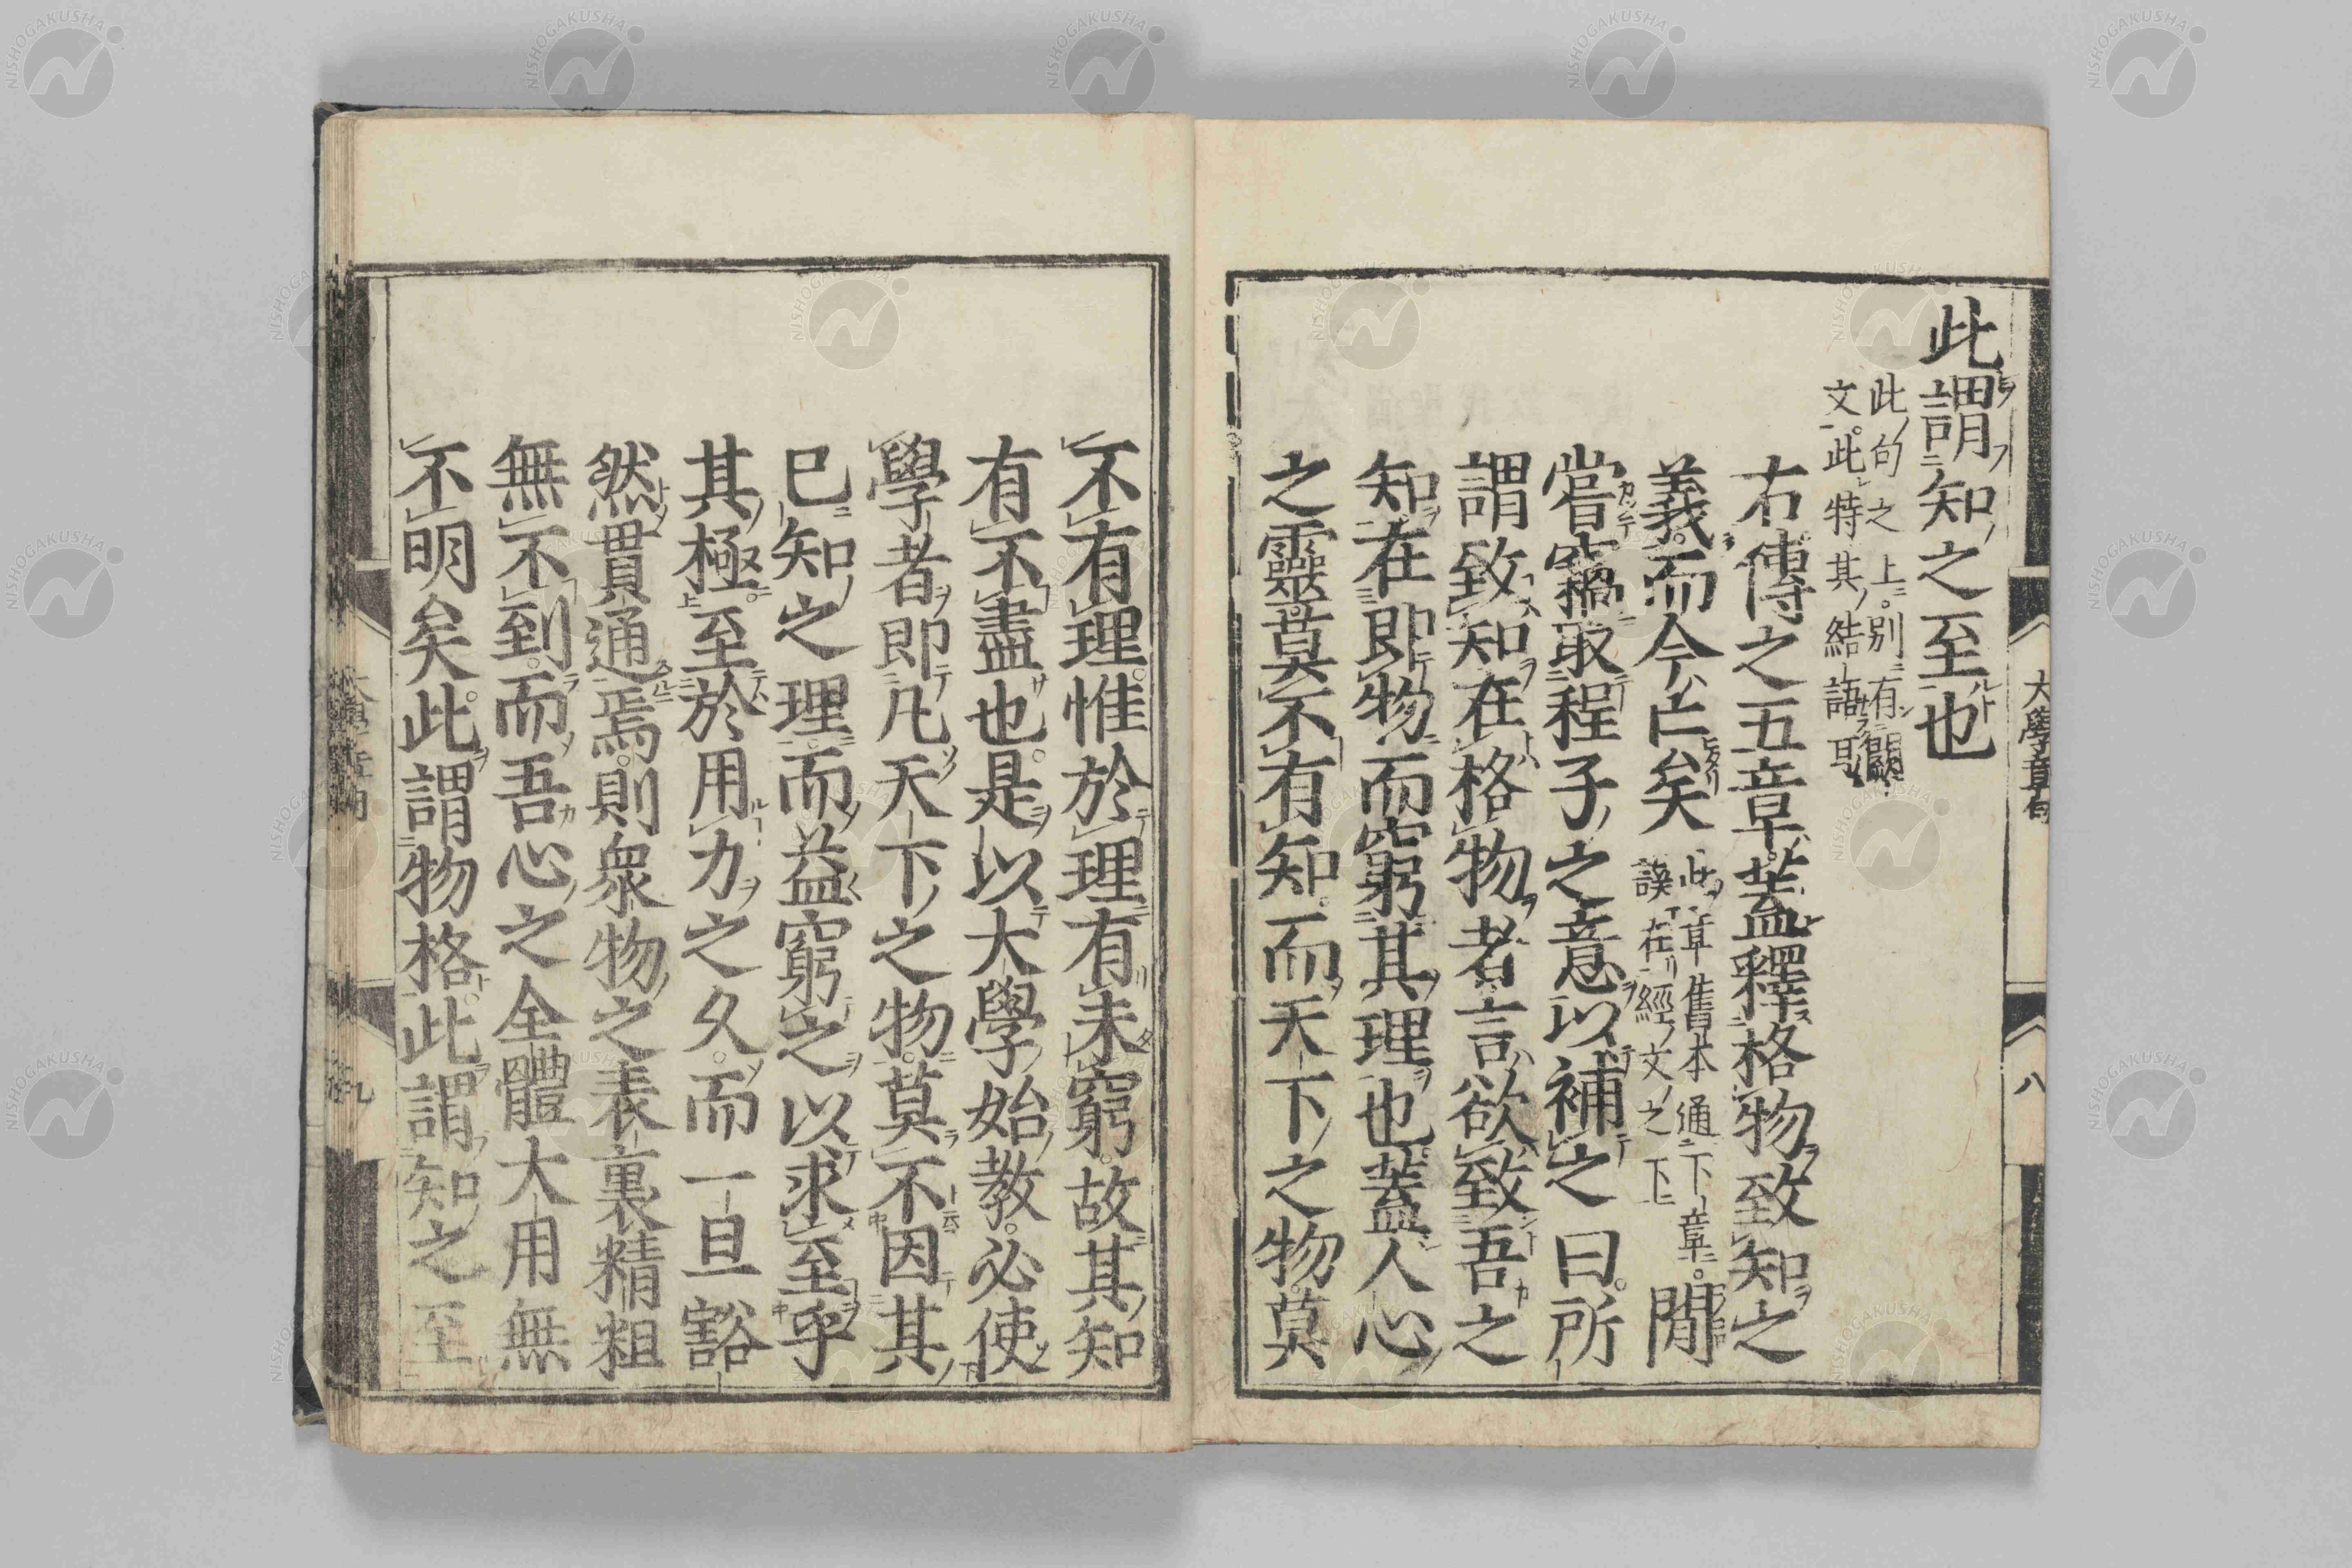 此謂知之至也
此句之上。別有闕
文。此特其結語耳
右傳之五章。蓋釋格物致知之
義。而今亡矣
此章舊本通下章。
誤在經文之下
閒
嘗竊取程子之意以補之曰。所
謂致知在格物者。言欲致吾之
知。在即物而窮其理也。蓋人心
之靈。莫不有知。而天下之物。莫
大學章句
八
不有理。惟於理有未窮。故其知
有不盡也。是以大學始教。必使
學者即凡天下之物。莫不因其
已知之理。而益窮之。以求至乎
其極。至於用力之久。而一旦豁
然貫通焉。則衆物之表裏精粗
無不到。而吾心之全體大用無
不明矣。此謂物格。此謂知之至
九